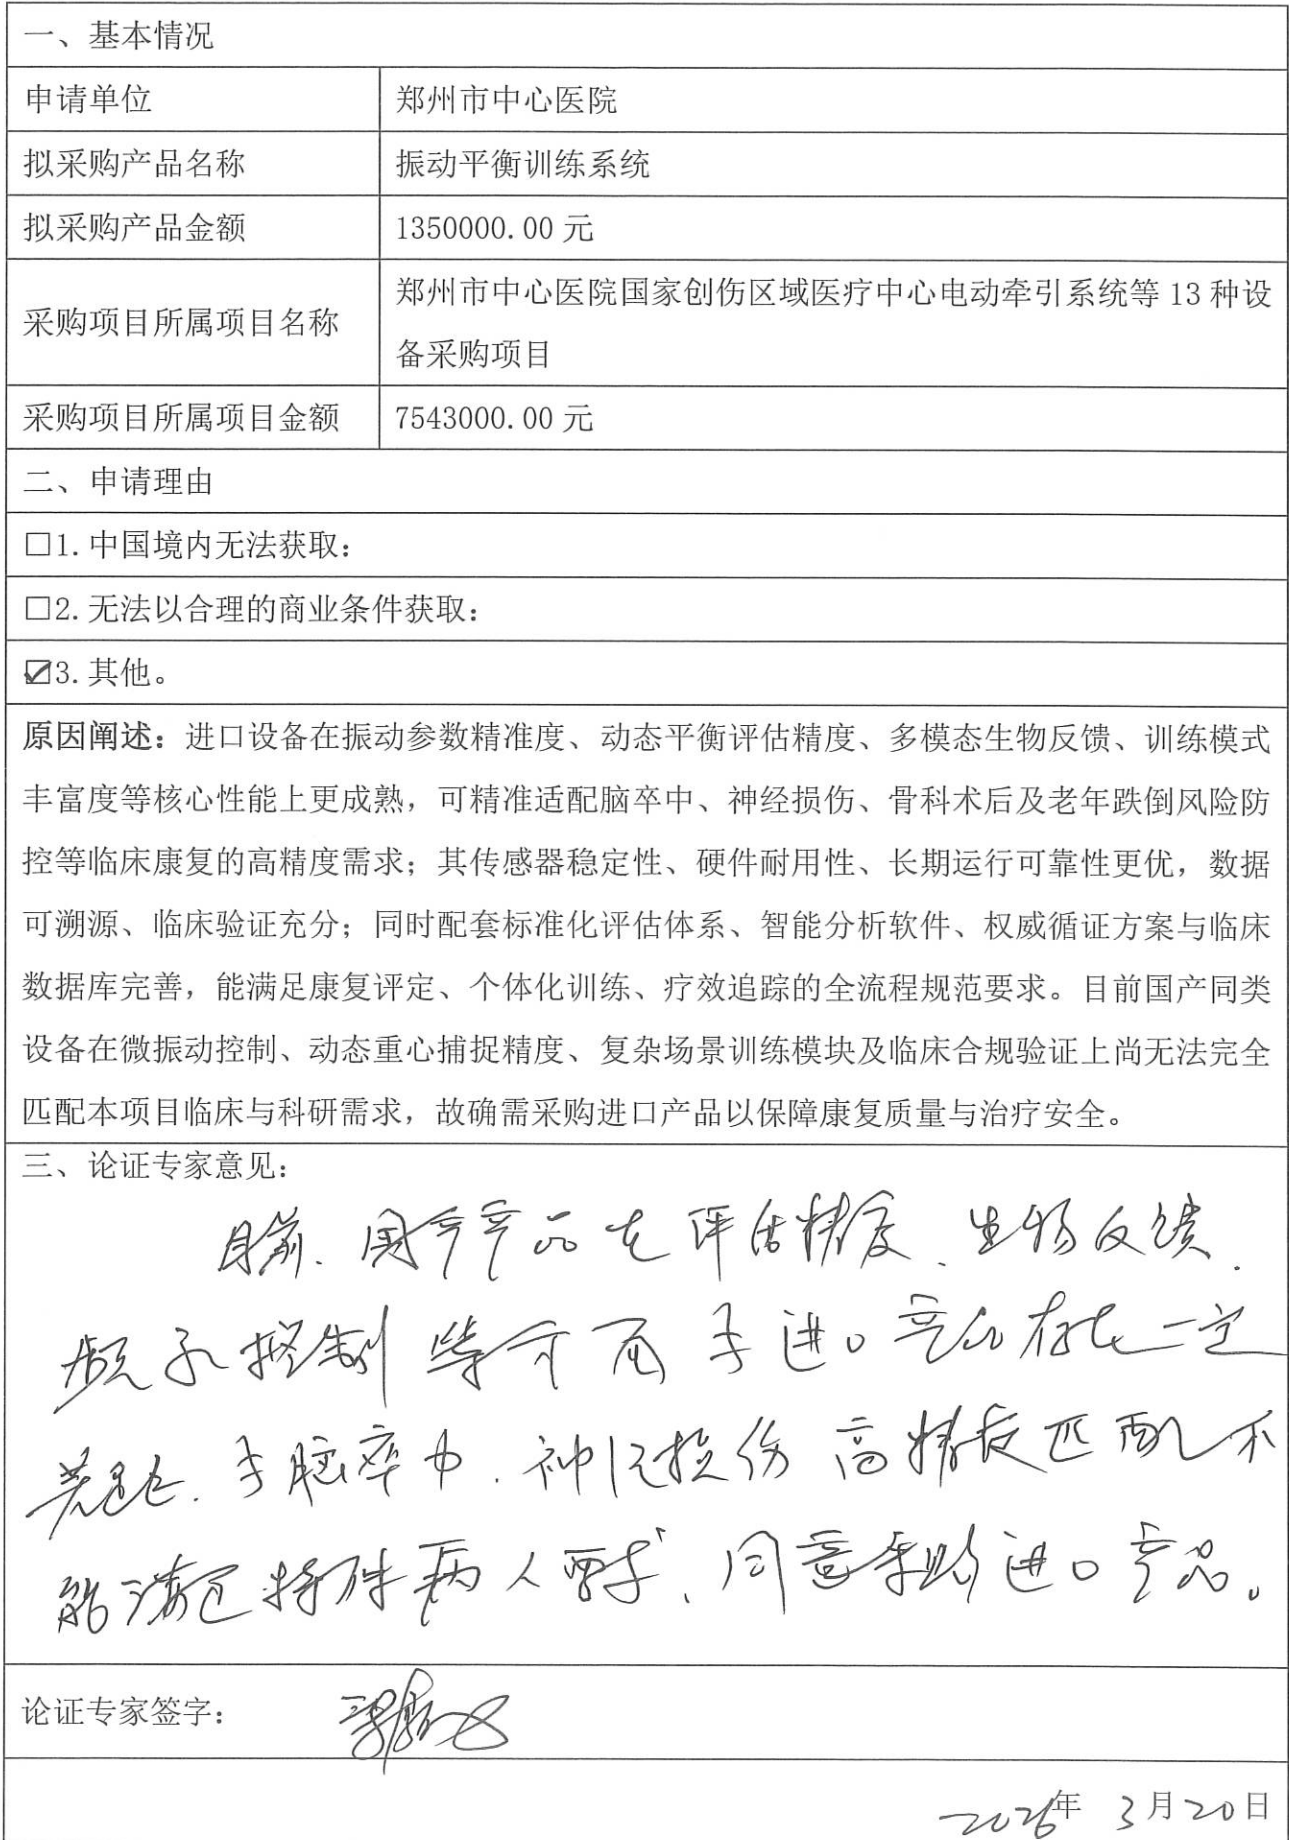 一、基本情况
申请单位
郑州市中心医院
拟采购产品名称
振动平衡训练系统
拟采购产品金额
1350000.00 元
采购项目所属项目名称
郑州市中心医院国家创伤区域医疗中心电动牵引系统等 13 种设
备采购项目
采购项目所属项目金额
7543000.00 元
二、申请理由
☐1.中国境内无法获取：
☐2.无法以合理的商业条件获取：
☑3.其他。
原因阐述：进口设备在振动参数精准度、动态平衡评估精度、多模态生物反馈、训练模式
丰富度等核心性能上更成熟，可精准适配脑卒中、神经损伤、骨科术后及老年跌倒风险防
控等临床康复的高精度需求；其传感器稳定性、硬件耐用性、长期运行可靠性更优，数据
可溯源、临床验证充分；同时配套标准化评估体系、智能分析软件、权威循证方案与临床
数据库完善，能满足康复评定、个体化训练、疗效追踪的全流程规范要求。目前国产同类
设备在微振动控制、动态重心捕捉精度、复杂场景训练模块及临床合规验证上尚无法完全
匹配本项目临床与科研需求，故确需采购进口产品以保障康复质量与治疗安全。
三、论证专家意见：
目前、国产产品在评估精度、生物反馈、
控制等方面与进口产品存在一定
差距、与脑卒中、神经损伤高精度匹配不
能满足特殊病人要求、同意采购进口产品。
论证专家签字：
2026年 3月20日